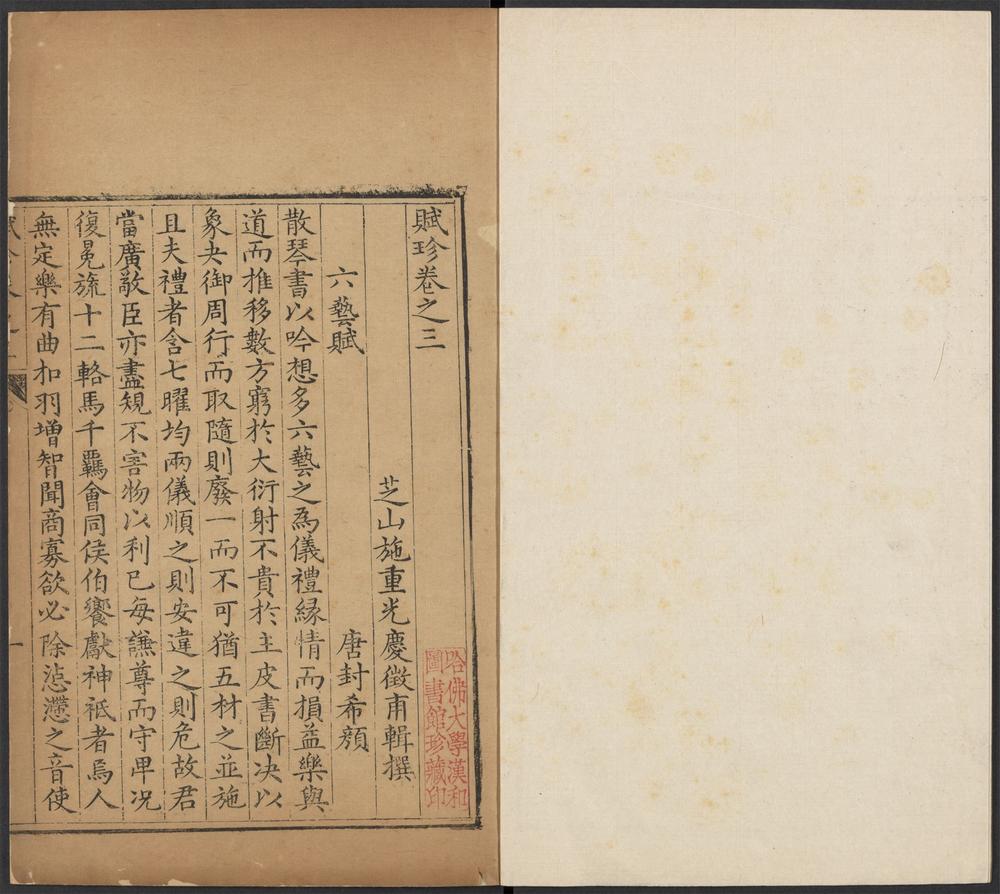 賦珍卷之三
芝山施重光慶徵甫輯撰
六藝賦
唐封希顏
散琴書以吟想多六藝之爲儀禮緣情而損益樂與
道而推移數方窮於大衍射不貴於主皮書斷决以
象夬御周行而取隨則廢一而不可猶五材之並施
且夫禮者含七曜均兩儀順之則安違之則危故君
當廣敬臣亦盡規不害物以利已每謙尊而守卑况
復冕旒十二輅馬千羈會同侯伯饗獻神祗者焉人
無定樂有曲加羽增智聞商寡欲必除惉懘之音使
一
哈佛大學漢和
圖書館珍藏印